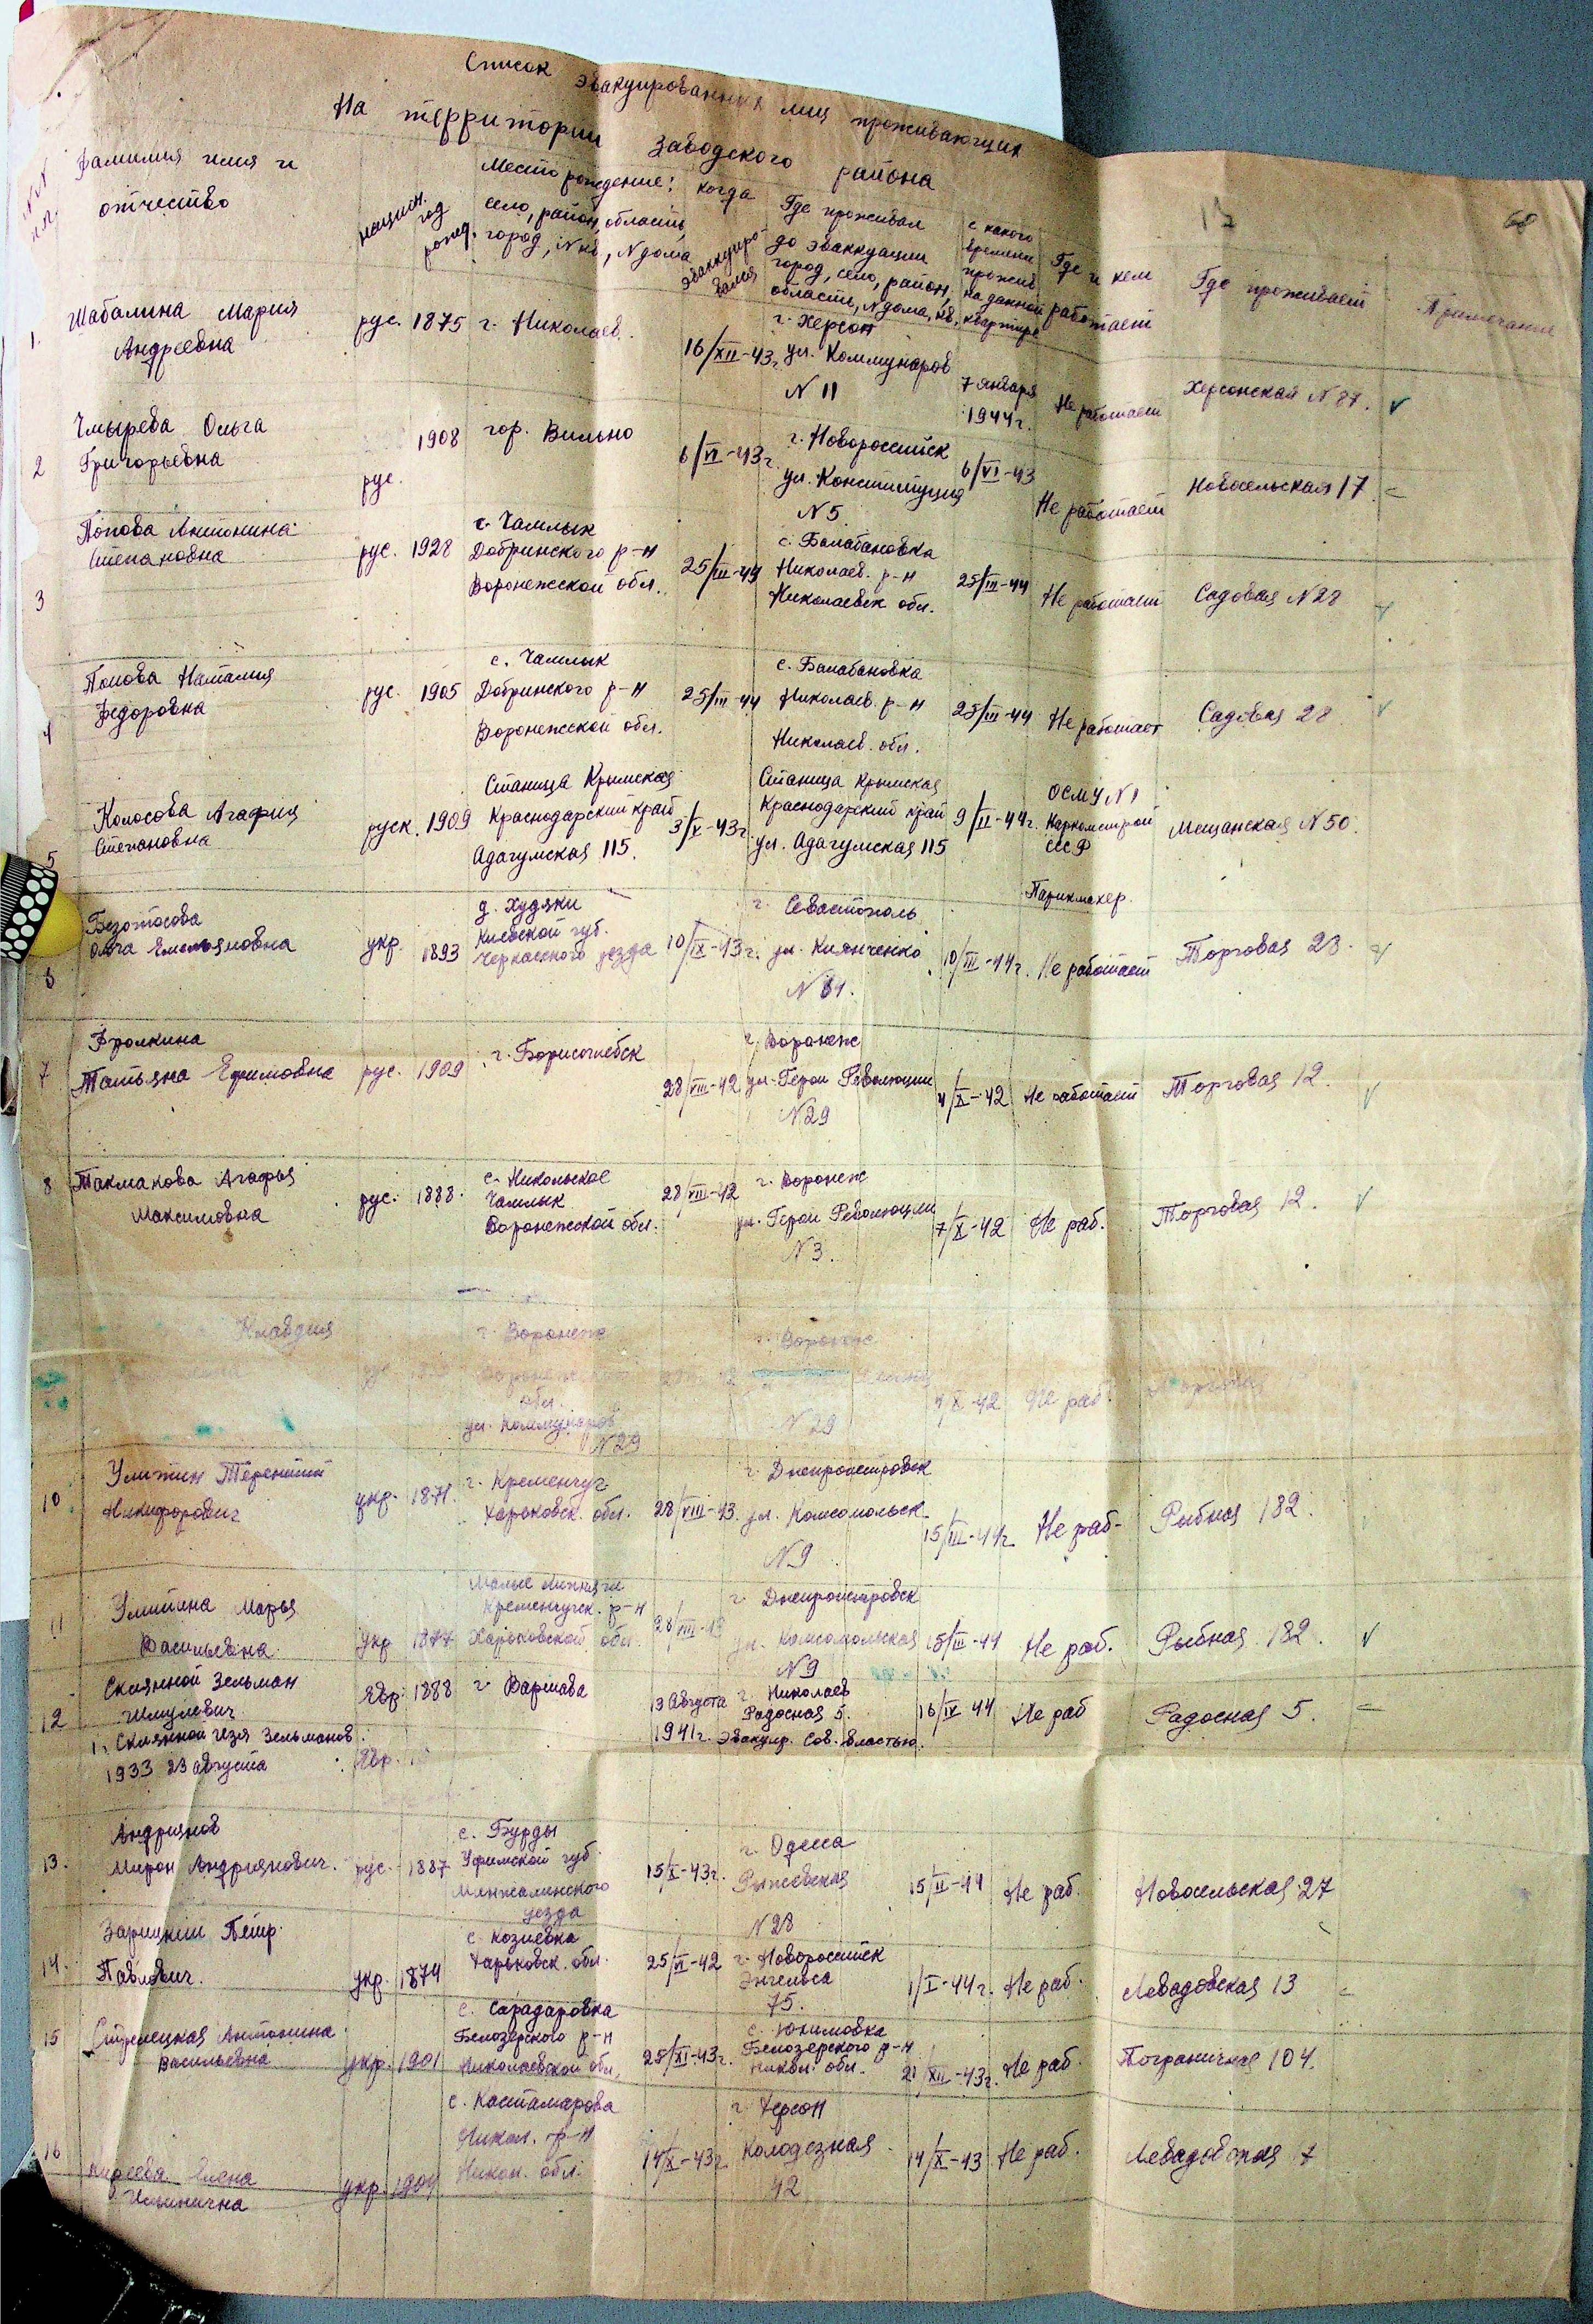 Список эвакуированных лиц проживающих
На территории Заводского района
17
60
NN п.п.
Фамилия имя и отчество
национ.
год рожд.
Место рождение: село, район, область, город, N кв, N дома
когда эвакуиро-вался
Где проживал до эваккуации город, село, район, область, N дома, кв,
с какого времени прожив на данной квартире
Где и кем работает
Где проживает
Примечание
1. Шабалина Мария Андреевна
рус. 1875 г. Николаев.
16/XII-43г. г. Херсон ул. Коммунаров N 11
7 января 1944г. Не работает Херсонская N 87. v
2 Чмырева Ольга Григорьевна
рус. 1908 гор. Вильно
6/VI-43г. г. Новороссийск ул. Конституция N 5
6/VI-43 Не работает Новосельская 17 =
3 Попова Антонина Степановна
рус. 1928 с. Чамлык Добринского р-н Воронежской обл.
25/III-44 с. Балабановка Николаев. р-н Николаевск обл.
25/III-44 Не работает Садовая N 28 v
4 Попова Наталия Федоровна
рус. 1905 с. Чамлык Добринского р-н Воронежской обл.
25/III-44 с. Балабановка Николаев. р-н Николаев. обл.
25/III-44 Не работает Садовая 28 v
5 Колосова Агафия Степановна
руск. 1909 Станица Крымская Краснодарский край Адагумская 115.
3/X-43г. Станица Крымская Краснодарский край ул. Адагумская 115
9/II-44г. ОСМУ N 1 Наркомстрой СССР Парикмахер. Мещанская N 50.
6 Безотосова Ольга Емельяновна
укр. 1893 д. Худяки Киевской губ. Черкасского уезда
10/IX-43г. г. Севастополь ул. N 61.
10/III-44г. Не работает Торговая 23. v
7 Фролкина Татьяна Ефимовна
рус. 1909 г. Борисоглебск
28/VIII-42 г. Воронеж ул. Герои Революции N 29
4/X-42 Не работает Торговая 12. v
8 Такмакова Агафья Максимовна
рус. 1888. с. Никольское Чамлык Воронежской обл.
28/VIII-42 г. Воронеж ул. Герои Революции N 3.
7/X-42 Не раб. Торговая 12. v
Клавдия
г. Воронеж обл. ул. Коммунаров N 29
г. Воронеж N 29
X-42 Не раб.
10 Улитин Терентий Никифорович
укр. 1871. г. Кременчуг Харьковск. обл.
28/VIII-43. г. Днепропетровск ул. Комсомольск. N 9
15/III-44г. Не раб- Рыбная 182.
11 Улитина Марья Васильевна
укр 1877 Малые Кременчугск. р-н Харьковской обл.
28/VIII-43 г. Днепропетровск ул. Комсомольская N 9
15/III-44 Не раб. Рыбная 182. v
12 Склянной Зельман Шмулевич
Явр. 1888 г. Варшава
13 Августа 1941г. г. Николаев Радосная 5. эвакуир. Сов. властью.
16/IV 44 Не раб Радосная 5. =
1, Склянной Изя Зельманов. 1933 23 августа Явр.
13. Андриянов Мирон Андриянович.
рус. 1887 с. Бурды Уфимской губ. Мензалинского уезда
15/X-43г. г. Одесса N 28
15/II-44 Не раб. Новосельская 27
14. Зарицкий Пётр Павлович.
укр. 1874 с. Козиевка Харьковск. обл.
25/VI-42 г. Новороссийск Энгельса 75.
1/I-44г. Не раб. Левадовская 13 =
15 Стрелецкая Антонина Васильевна
укр. 1901 с. Сарадаровка Белозерского р-н Николаевской обл,
25/XI-43г. с. Юкимовка Белозерского р-н Никол. обл.
21/XII-43г. Не раб. Пограничная 104.
16 Киреева Елена Ильинична
укр. 1904 с. Костамарова Никол. р-н Никол. обл.
14/X-43г г. Херсон Колодезная 42
14/X-43 Не раб. Левадовская 7